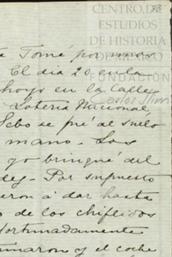 CENTRO DE
ESTUDIOS
DE HISTORIA
DE MÉXICO
FUNDACIÓN
Carlos Slim
Tomé por
El dia 20 en la
hoyo en la calle
Lotería Nacional
Sebo se fué al suelo
mano. Los
yo brinqué del
Por supuesto
eron á dar hasta
o de los chiflidos
fortunadamente
maron y el coche